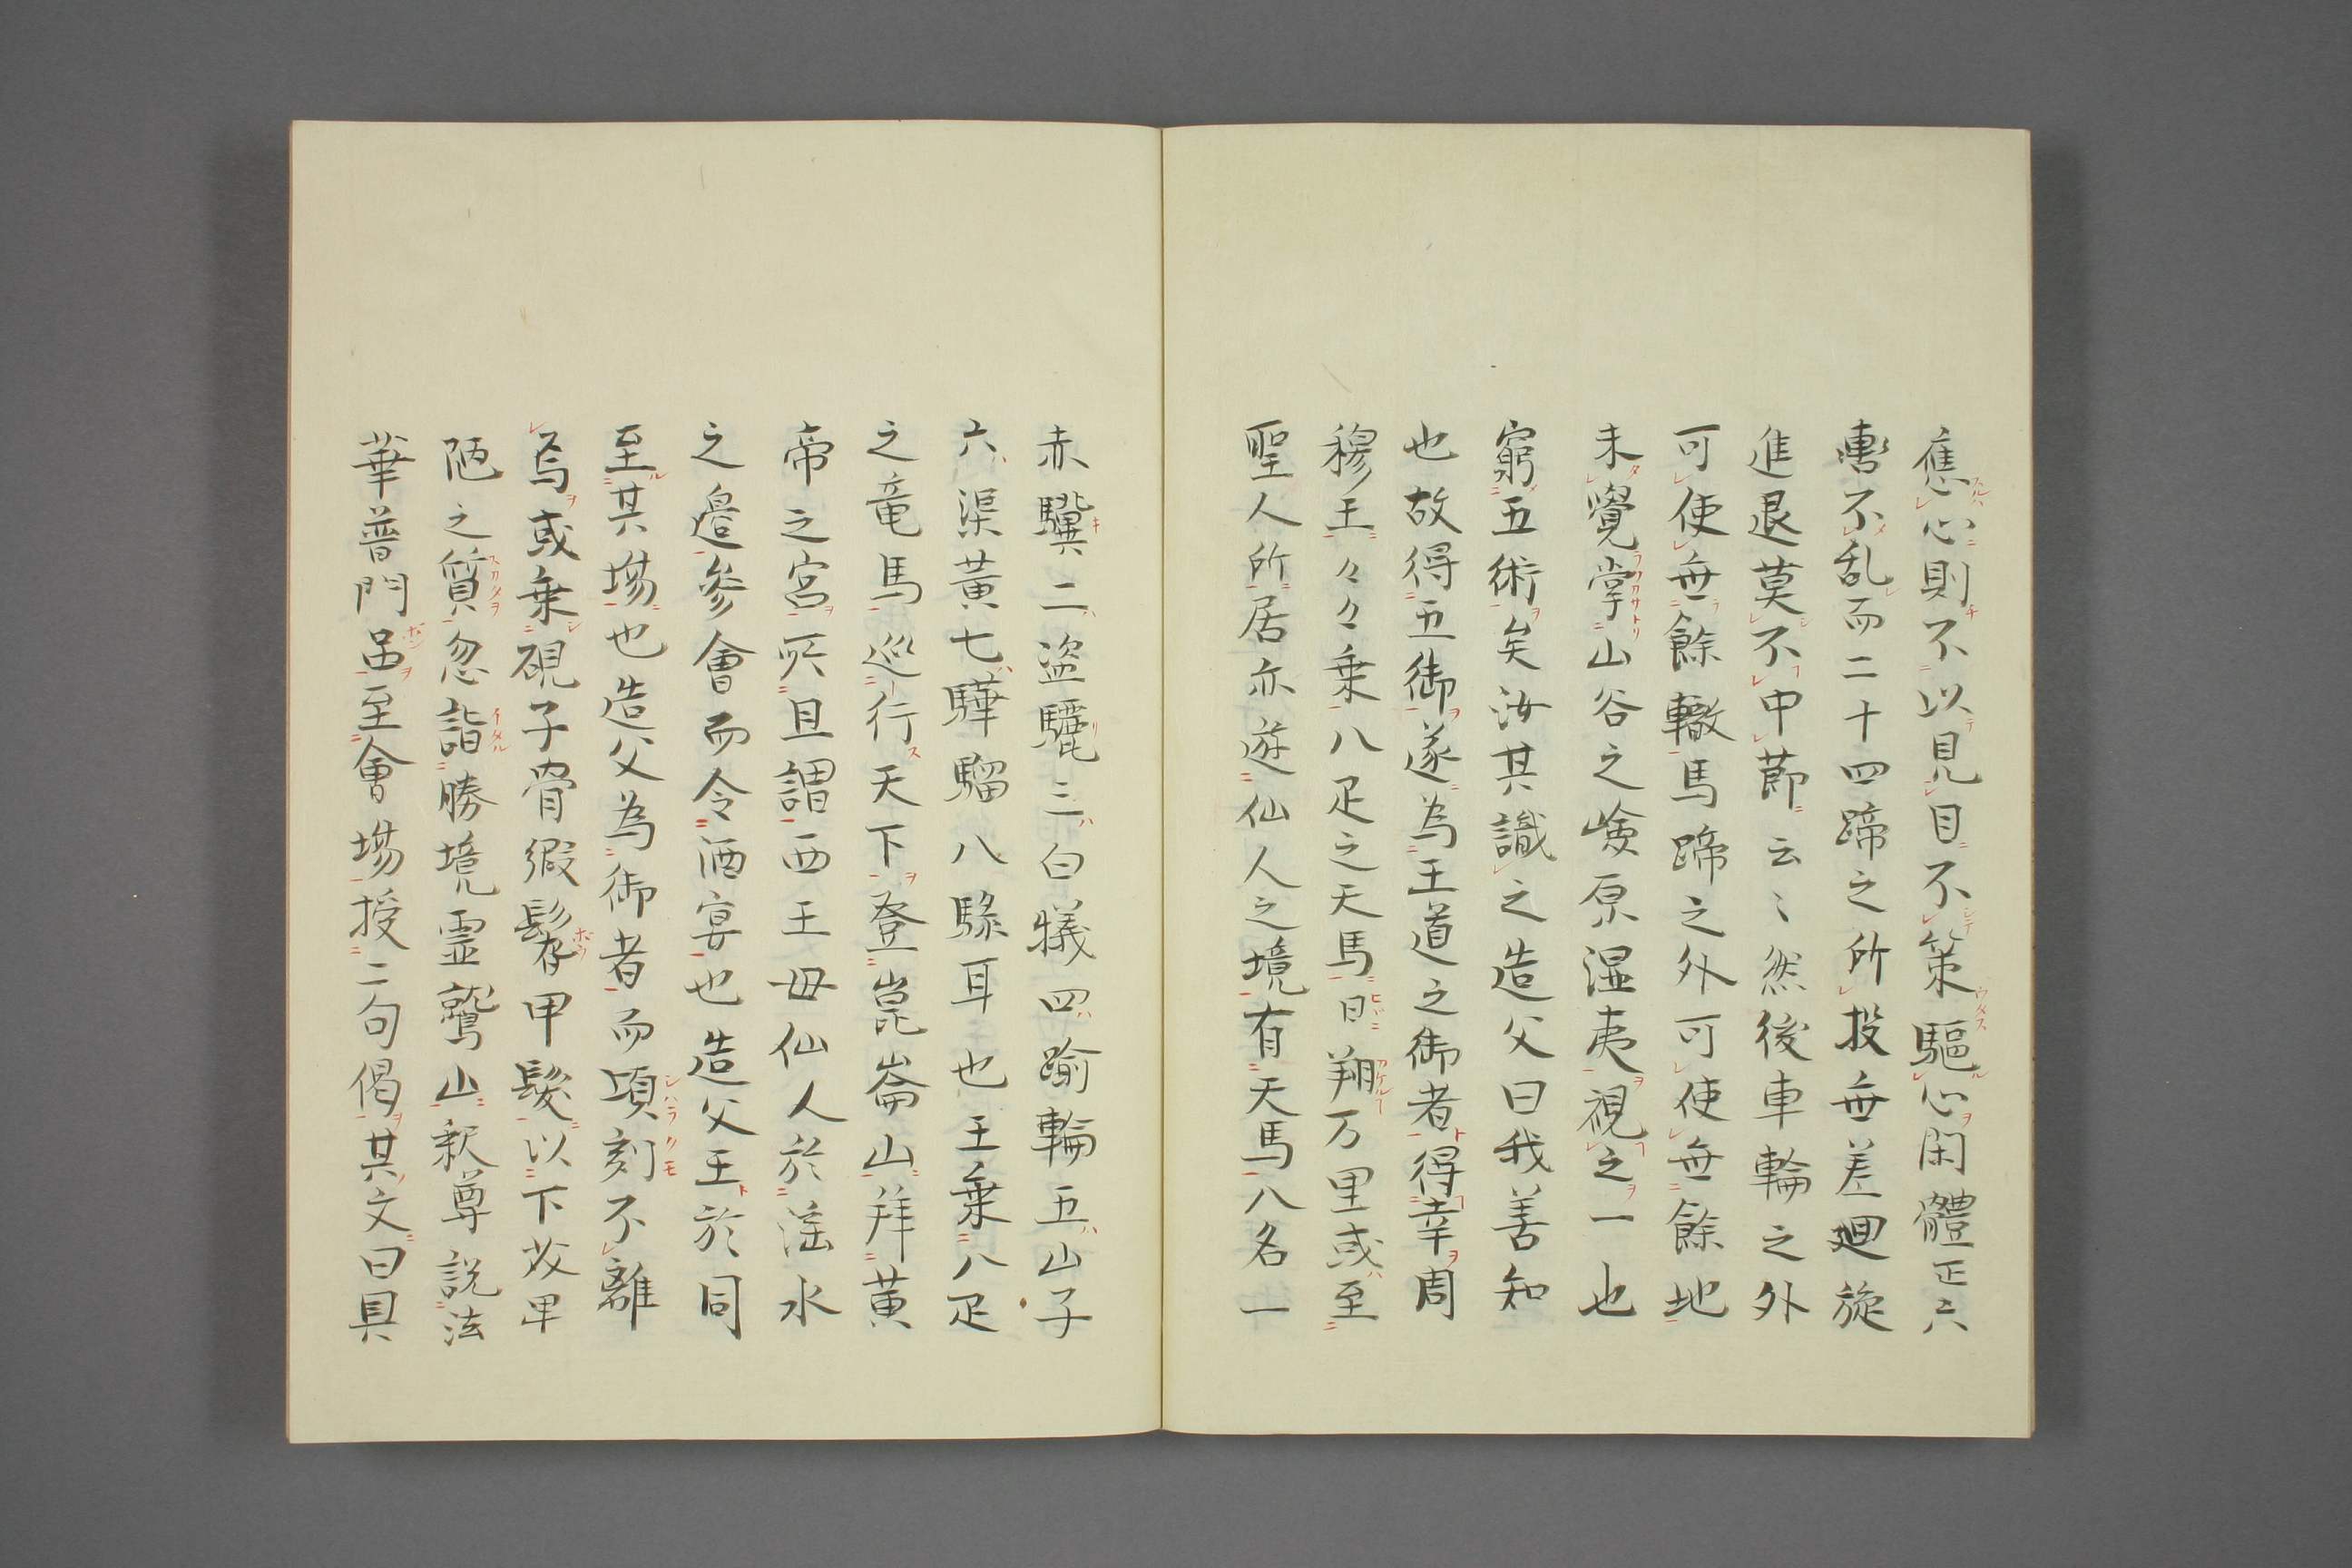 應心則不以見目不策驅心閑體正六
轡不乱而二十四蹄之所投無差廻旋
進退莫不中莭云〻然後車輪之外
可使無餘轍馬蹄之外可使無餘地
未覺掌山谷之嶮原湿夷視之一也
窮五術矣汝其識之造父曰我善知
也故得五御遂為王道之御者得幸周
穆王々々乗八疋之天馬日翔万里或至
聖人所居亦遊仙人之境有天馬八名一
赤驥二盗驪三白犠四踰輪五山子
六渠黄七驊騮八騄耳也王乗八疋
之竜馬巡行天下登崑崙山拜黄
帝之宮所且謂西王母仙人於滛水
之邉參會而令酒宴也造父王於同
至其塲也造父為御者而項刻不離
焉或乗硯子脅緞髣甲髪以下岌畢
陋之質忽詣勝境霊鷲山釈尊説法
華普門品至會塲授二句偈其文曰具